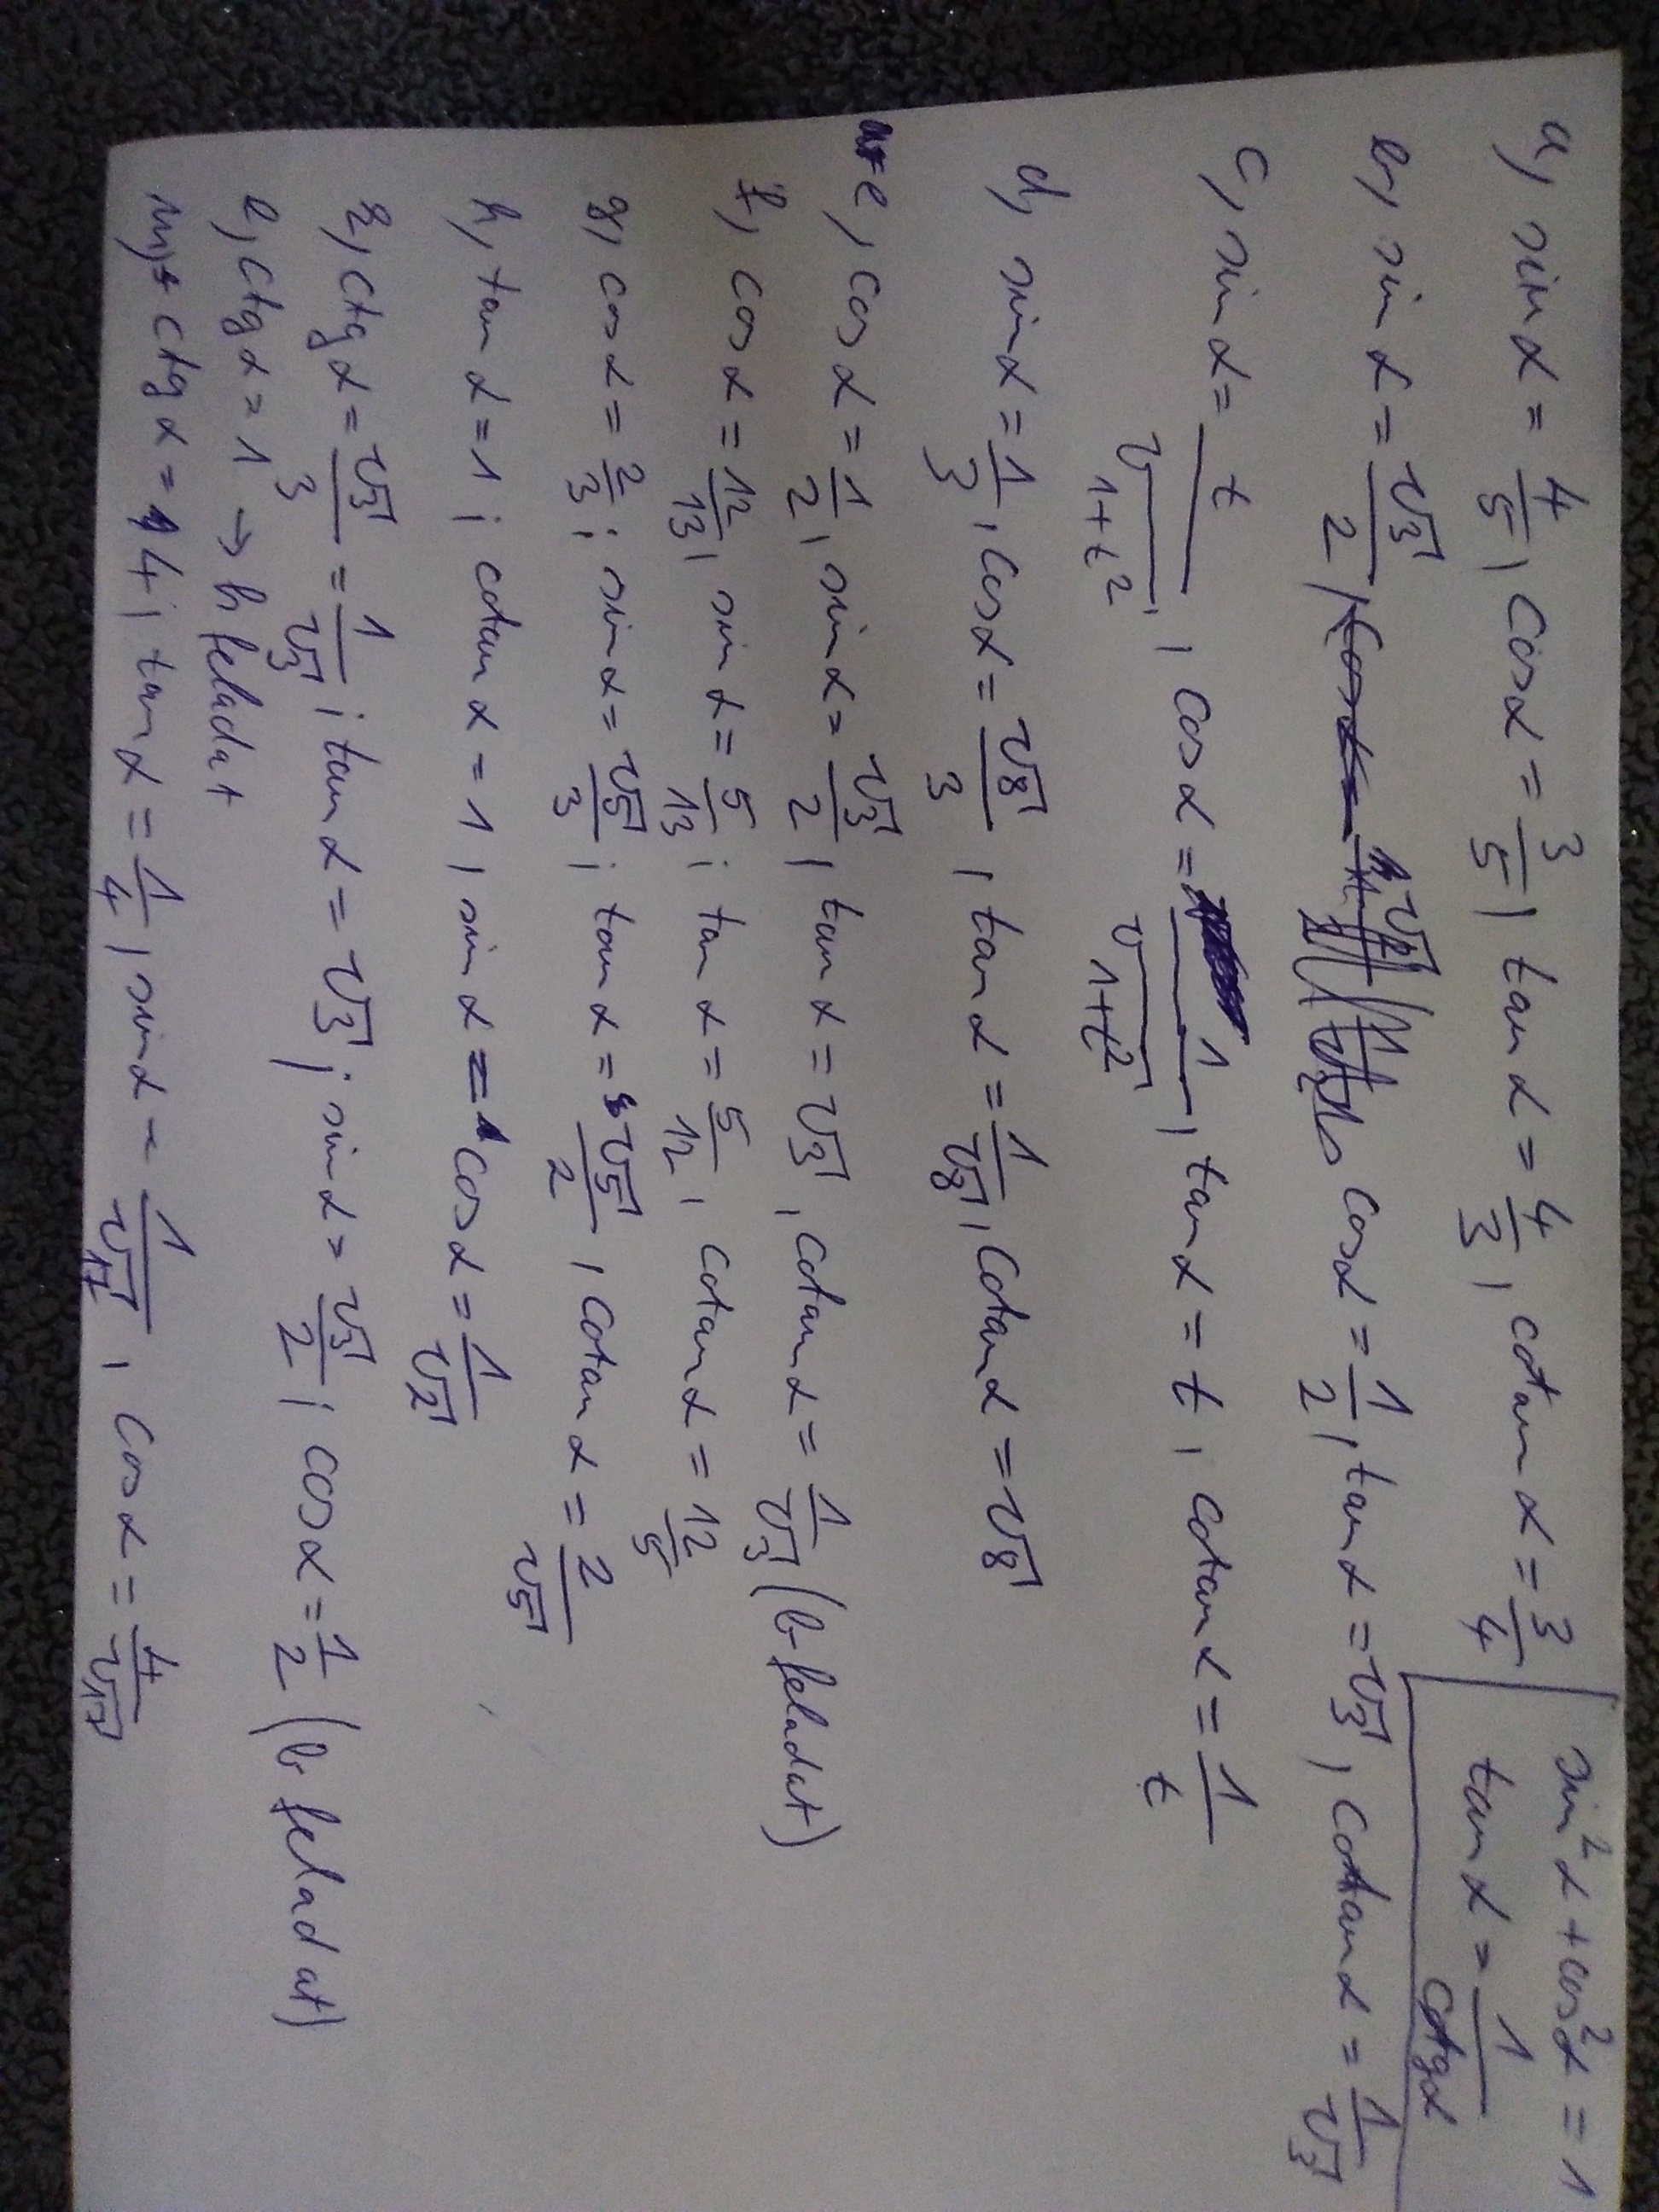 a, sin α = 4/5, cos α = 3/5, tan α = 4/3, cotan α = 3/4
sin²α + cos²α = 1
tan α = 1/ctg α
b, sin α = √3/2, cos α = 1/2, tan α = √3, cotan α = 1/√3
c, sin α = t/√(1+t²), cos α = 1/√(1+t²), tan α = t, cotan α = 1/t
d, sin α = 1/3, cos α = √8/3, tan α = 1/√8, cotan α = √8
e, cos α = 1/2, sin α = √3/2, tan α = √3, cotan α = 1/√3 (b feladat)
f, cos α = 12/13, sin α = 5/13; tan α = 5/12, cotan α = 12/5
g, cos α = 2/3; sin α = √5/3; tan α = √5/2, cotan α = 2/√5
h, tan α = 1; cotan α = 1, sin α = cos α = 1/√2
k, ctg α = √3/3 = 1/√3; tan α = √3; sin α = √3/2; cos α = 1/2 (b feladat)
l, ctg α = 1 → h feladat
m, ctg α = 4; tan α = 1/4, sin α = 1/√17, cos α = 4/√17